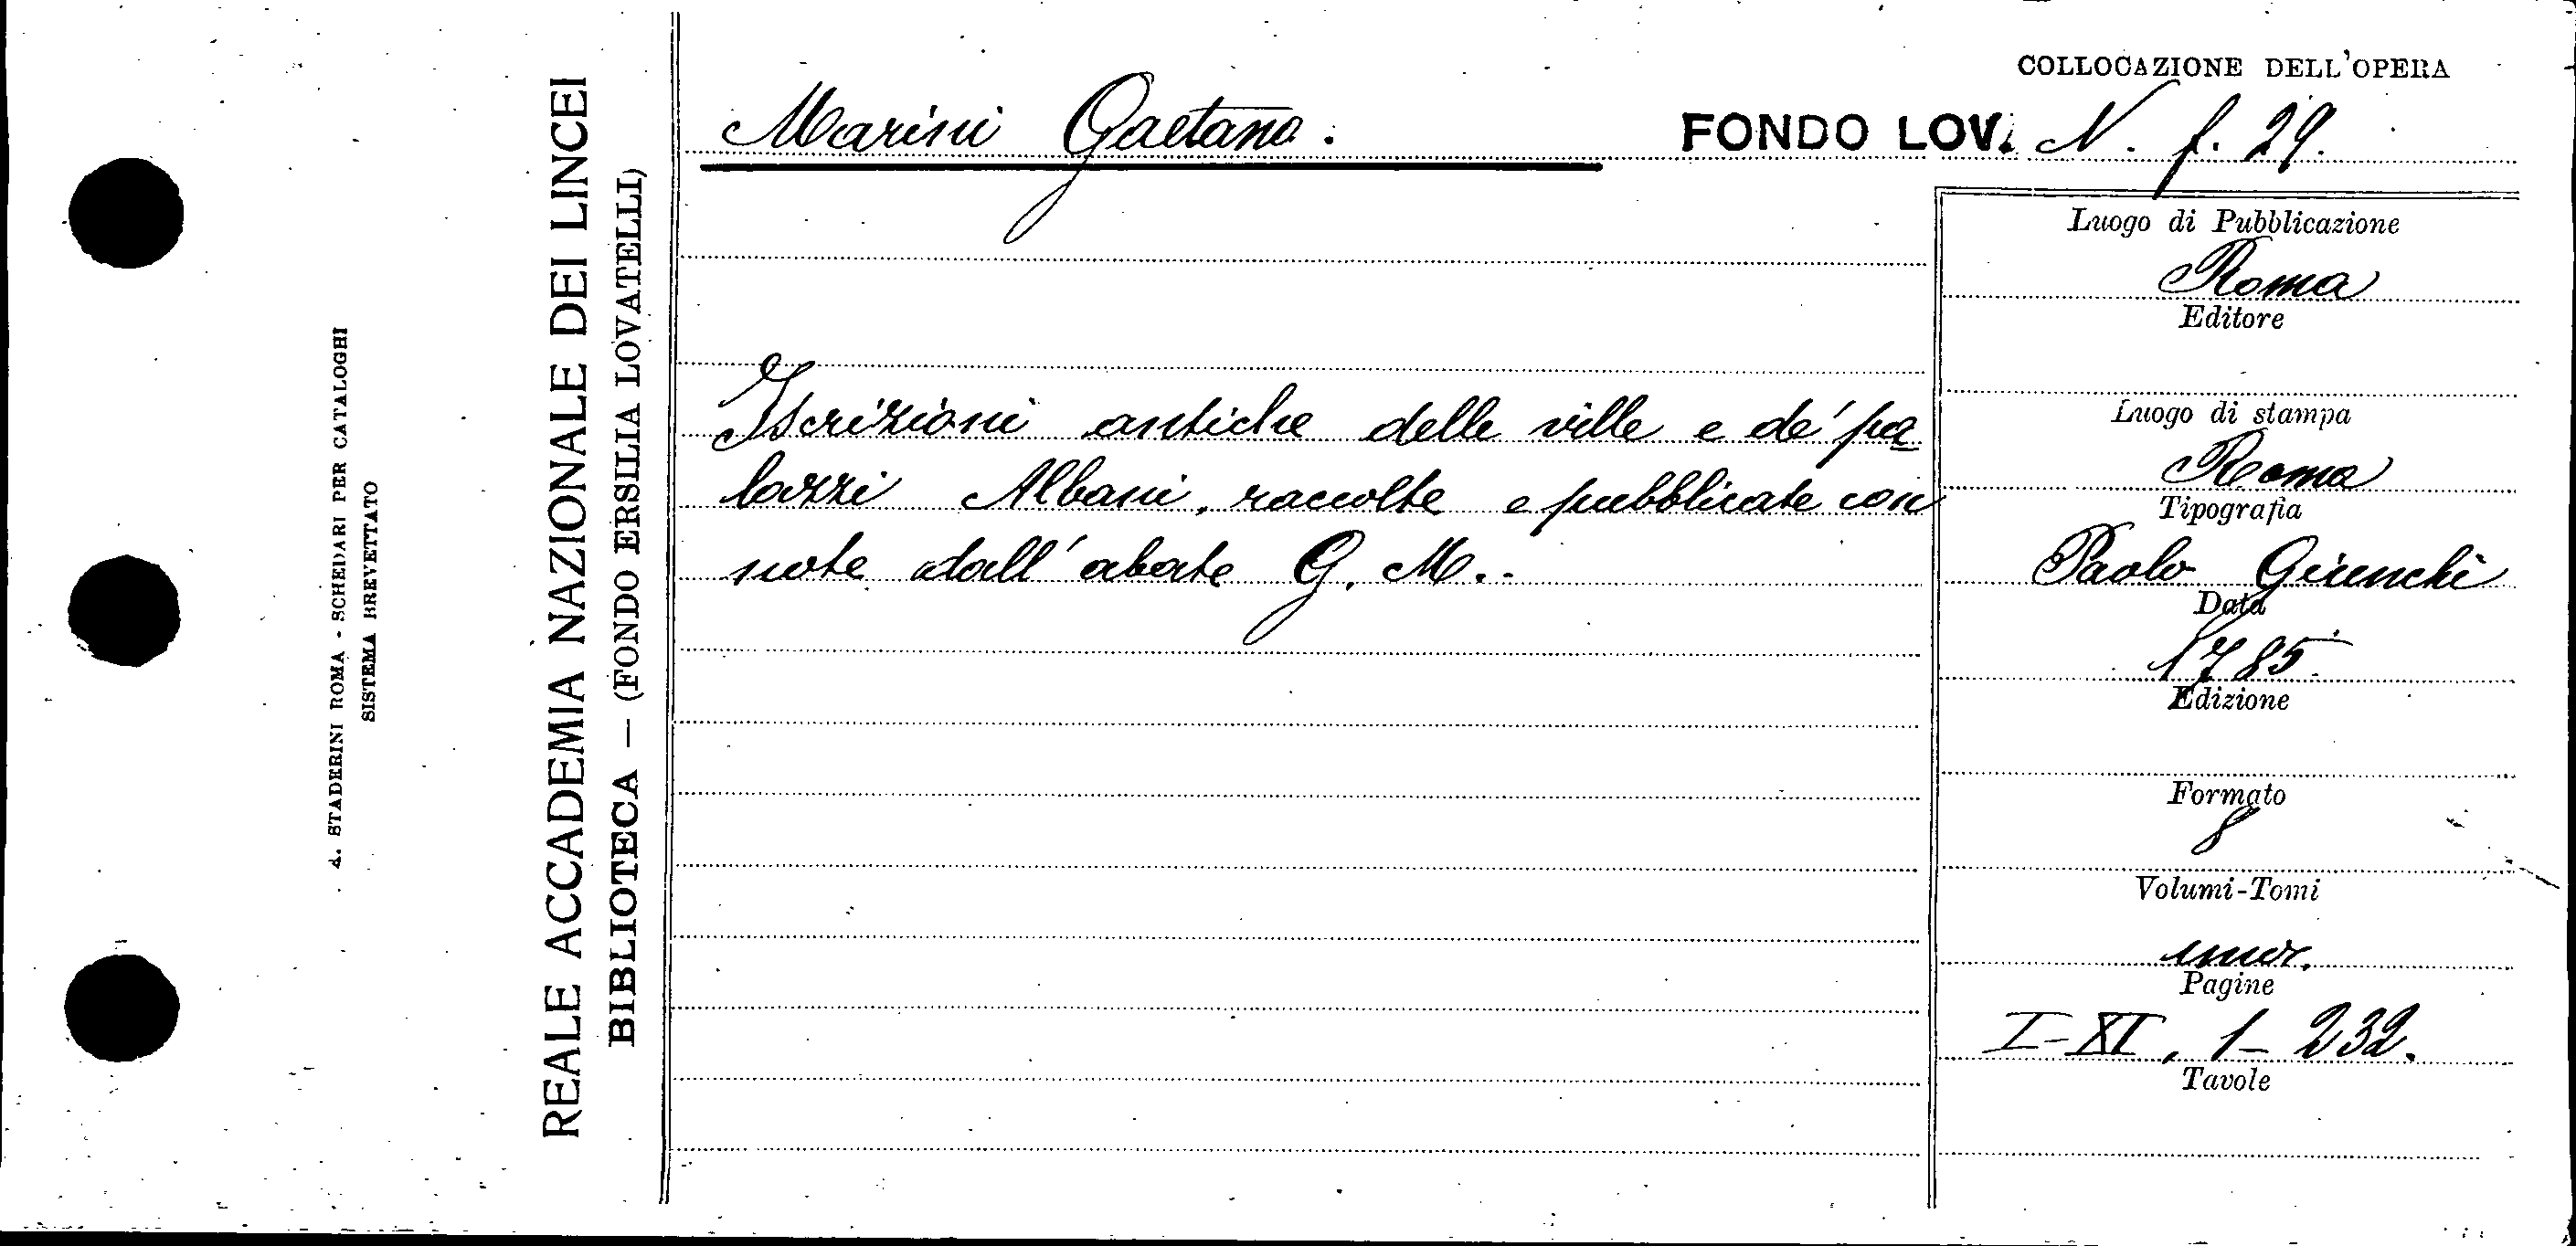 A. STADERINI ROMA - SCHEDARI PER CATALOGHI
SISTEMA BREVETTATO
REALE ACCADEMIA NAZIONALE DEI LINCEI
BIBLIOTECA — (FONDO ERSILIA LOVATELLI)
COLLOCAZIONE DELL'OPERA
Marini Gaetano.
FONDO LOV. N. f. 29.
Iscrizioni antiche delle ville e de' pa
lazzi Albani, raccolte e pubblicate con
note dall'abate G. M..
Luogo di Pubblicazione
Roma
Editore
Luogo di stampa
Roma
Tipografia
Paolo Giunchi
Data
1785.
Edizione
Formato
8
Volumi-Tomi
Pagine
I-XI, 1-232.
Tavole